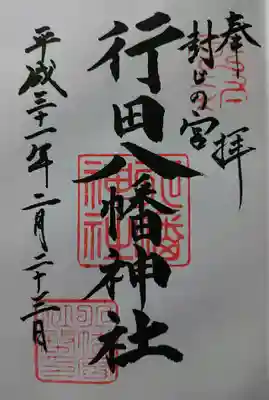 奉拝
封じの宮
行田八幡神社
平成三十一年二月二十三日